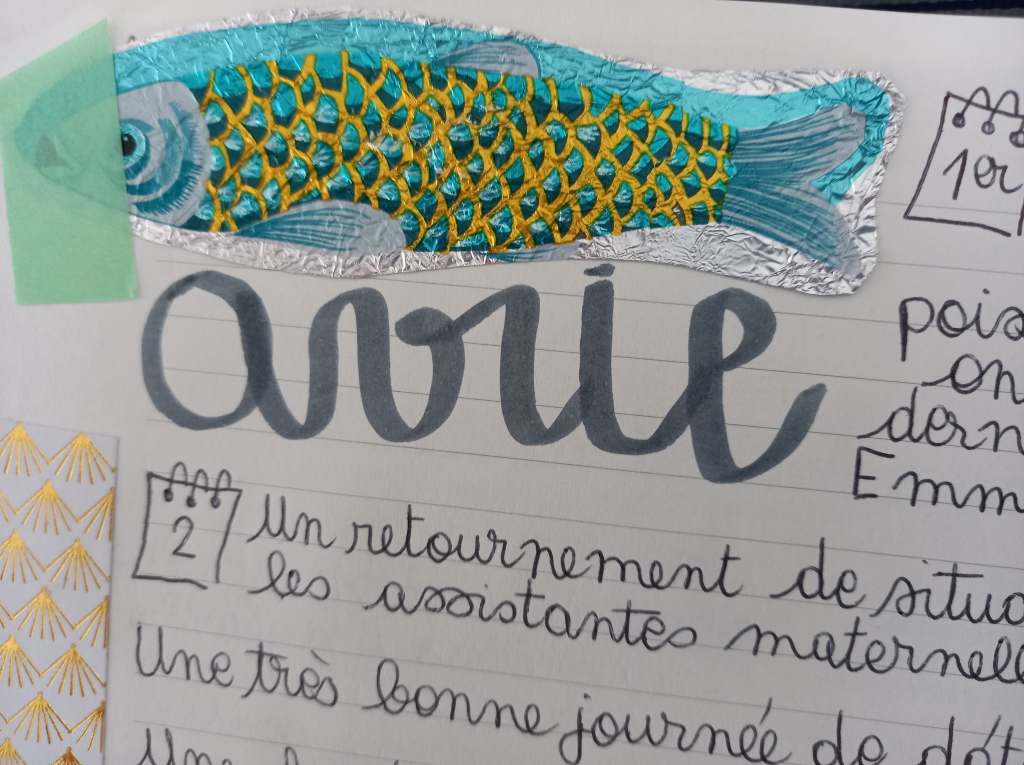 1er
avril
pois
on
dern
Emm
2
Un retournement de situa
les assistantes maternell
Une très bonne journée de dét
Une